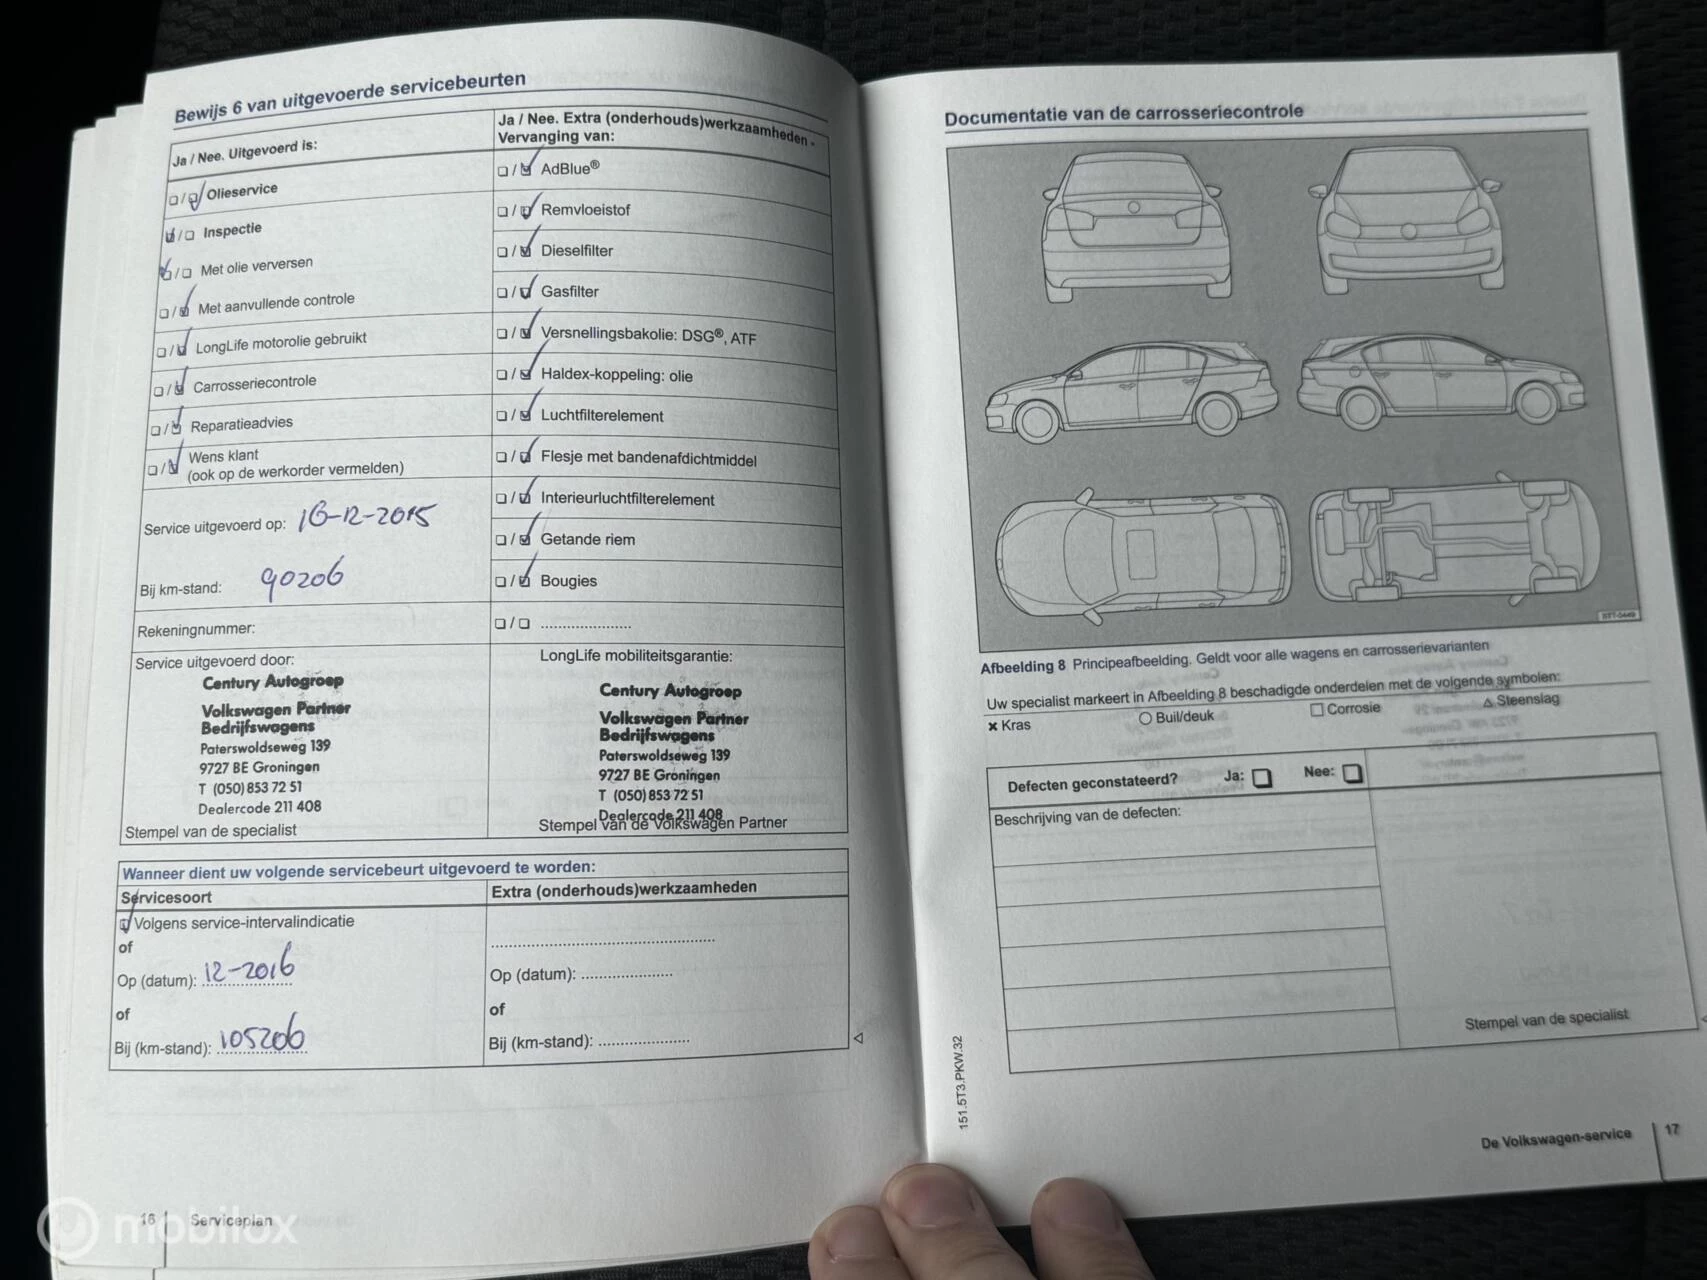 Bewijs 6 van uitgevoerde servicebeurten
Ja / Nee. Uitgevoerd is:
Olieservice
Inspectie
Met olie verversen
Met aanvullende controle
LongLife motorolie gebruikt
Carrosseriecontrole
Reparatieadvies
Wens klant
(ook op de werkorder vermelden)
Service uitgevoerd op: 16-12-2015
Bij km-stand: 90206
Rekeningnummer:
Service uitgevoerd door:
Century Autogroep
Volkswagen Partner
Bedrijfswagens
Paterswoldseweg 139
9727 BE Groningen
T (050) 853 72 51
Dealercode 211 408
Stempel van de specialist
Ja / Nee. Extra (onderhouds)werkzaamheden -
Vervanging van:
AdBlue®
Remvloeistof
Dieselfilter
Gasfilter
Versnellingsbakolie: DSG®, ATF
Haldex-koppeling: olie
Luchtfilterelement
Flesje met bandenafdichtmiddel
Interieurluchtfilterelement
Getande riem
Bougies
LongLife mobiliteitsgarantie:
Century Autogroep
Volkswagen Partner
Bedrijfswagens
Paterswoldseweg 139
9727 BE Groningen
T (050) 853 72 51
Dealercode 211 408
Stempel van de Volkswagen Partner
Wanneer dient uw volgende servicebeurt uitgevoerd te worden:
Servicesoort
Volgens service-intervalindicatie
of
Op (datum): 12-2016
of
Bij (km-stand): 105206
Extra (onderhouds)werkzaamheden
Op (datum):
of
Bij (km-stand):
16
Serviceplan
mobilox
Documentatie van de carrosseriecontrole
Afbeelding 8 Principeafbeelding. Geldt voor alle wagens en carrosserievarianten
Uw specialist markeert in Afbeelding 8 beschadigde onderdelen met de volgende symbolen:
Kras
Buil/deuk
Corrosie
Steenslag
Defecten geconstateerd? Ja: Nee:
Beschrijving van de defecten:
Stempel van de specialist
151.5T3.PKW.32
De Volkswagen-service
17